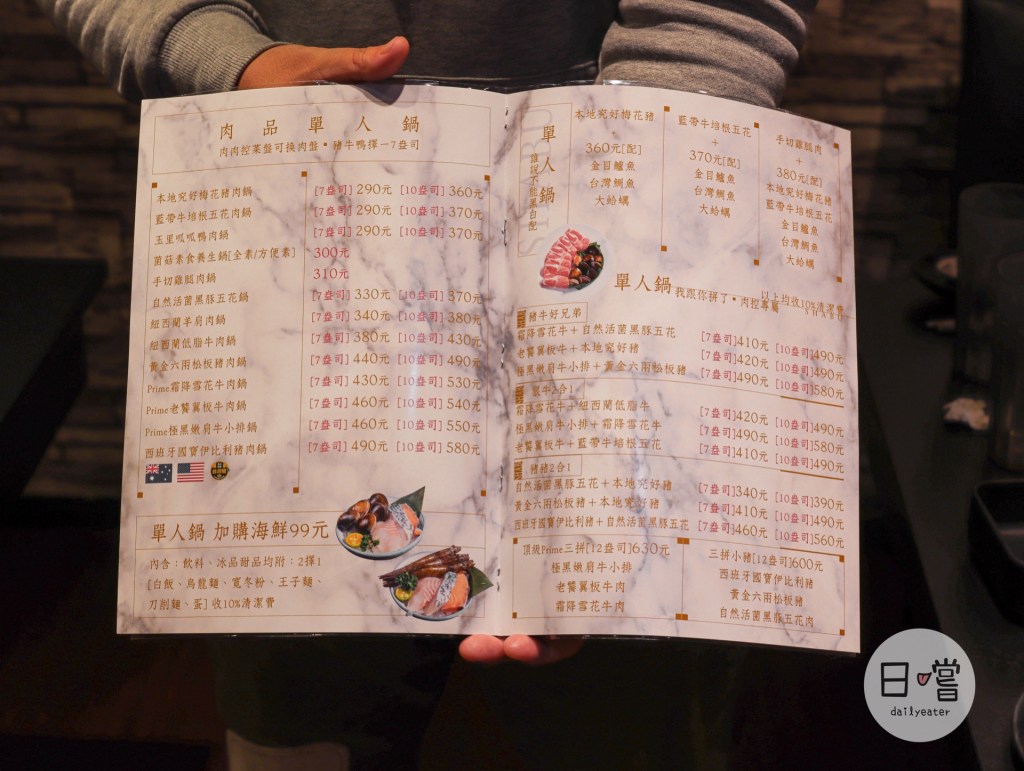 肉品單人鍋
肉肉控菜盤可換肉盤•豬牛鴨擇一7盎司
本地究好梅花豬肉鍋 [7盎司] 290元 [10盎司] 360元
藍帶牛培根五花肉鍋 [7盎司] 290元 [10盎司] 370元
玉里呱呱鴨肉鍋 [7盎司] 290元 [10盎司] 370元
菌菇素食養生鍋[全素/方便素] 300元
手切雞腿肉鍋 310元
自然活菌黑豚五花鍋 [7盎司] 330元 [10盎司] 370元
紐西蘭羊肩肉鍋 [7盎司] 340元 [10盎司] 380元
紐西蘭低脂牛肉鍋 [7盎司] 380元 [10盎司] 430元
黃金六兩松板豬肉鍋 [7盎司] 440元 [10盎司] 490元
Prime霜降雪花牛肉鍋 [7盎司] 430元 [10盎司] 530元
Prime老饕翼板牛肉鍋 [7盎司] 460元 [10盎司] 540元
Prime極黑嫩肩牛小排鍋 [7盎司] 460元 [10盎司] 550元
西班牙國寶伊比利豬肉鍋 [7盎司] 490元 [10盎司] 580元
單人鍋 加購海鮮99元
內含：飲料、冰品甜品均附：2擇1
[白飯、烏龍麵、寬冬粉、王子麵、
刀削麵、蛋] 收10%清潔費
單人鍋
誰說不能黑白配
本地究好梅花豬
+
360元[配]
金目鱸魚
台灣鯛魚
大蛤蠣
藍帶牛培根五花
+
370元[配]
金目鱸魚
台灣鯛魚
大蛤蠣
手切雞腿肉
+
380元[配]
本地究好梅花豬
藍帶牛培根五花
金目鱸魚
台灣鯛魚
大蛤蠣
單人鍋 我跟你拼了•肉控專屬
以上均收10%清潔費
豬牛好兄弟
霜降雪花牛+自然活菌黑豚五花 [7盎司]410元 [10盎司]490元
老饕翼板牛+本地究好豬 [7盎司]420元 [10盎司]490元
極黑嫩肩牛小排+黃金六兩松板豬 [7盎司]490元 [10盎司]580元
牛2合1
霜降雪花牛+紐西蘭低脂牛 [7盎司]420元 [10盎司]490元
極黑嫩肩牛小排+霜降雪花牛 [7盎司]490元 [10盎司]580元
老饕翼板牛+藍帶牛培根五花 [7盎司]410元 [10盎司]490元
豬豬2合1
自然活菌黑豚五花+本地究好豬 [7盎司]340元 [10盎司]390元
黃金六兩松板豬+本地究好豬 [7盎司]410元 [10盎司]490元
西班牙國寶伊比利豬+自然活菌黑豚五花 [7盎司]460元 [10盎司]560元
頂級Prime三拼[12盎司]630元
極黑嫩肩牛小排
老饕翼板牛肉
霜降雪花牛肉
三拼小豬[12盎司]600元
西班牙國寶伊比利豬
黃金六兩松板豬
自然活菌黑豚五花肉
日嚐
dailyeater